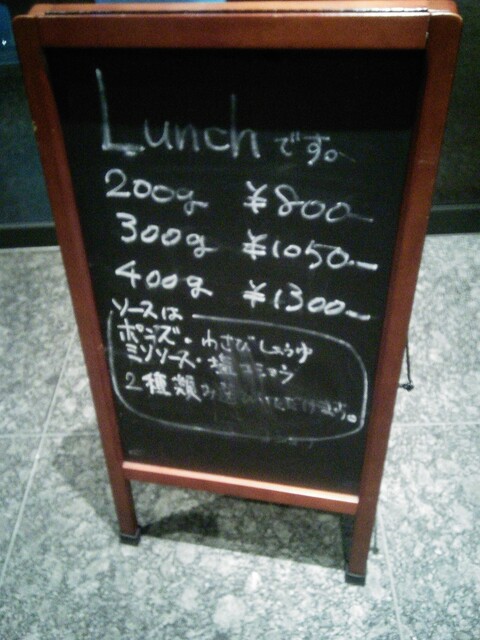 Lunch です。
200g ¥800-
300g ¥1050-
400g ¥1300-
ソースは
ポンズ・わさびしょうゆ
ミソソース・塩コショウ
2種類お選びいただけます。